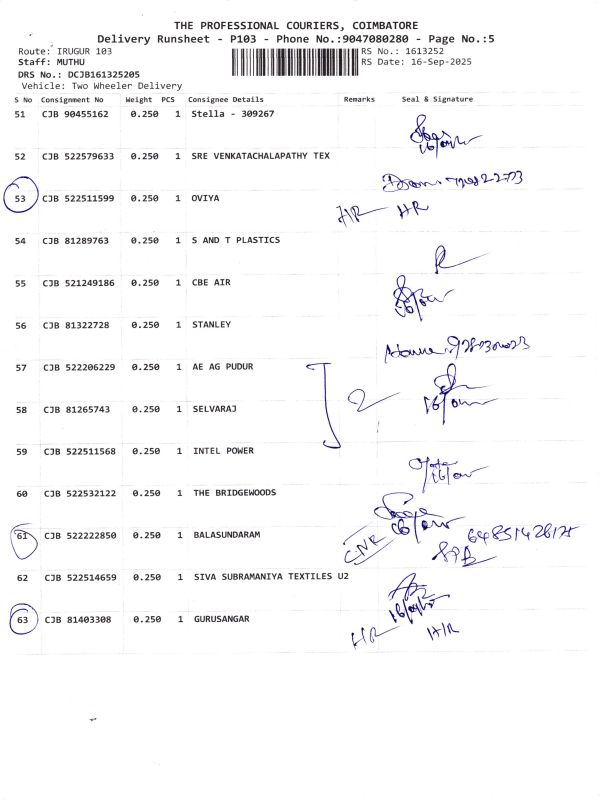 THE PROFESSIONAL COURIERS, COIMBATORE
Delivery Runsheet - P103 - Phone No.:9047080280 - Page No.:5
Route: IRUGUR 103 RS No.: 1613252
Staff: MUTHU RS Date: 16-Sep-2025
DRS No.: DCJB161325205
Vehicle: Two Wheeler Delivery
S No Consignment No Weight PCS Consignee Details Remarks Seal & Signature
51 CJB 90455162 0.250 1 Stella - 309267
52 CJB 522579633 0.250 1 SRE VENKATACHALAPATHY TEX
53 CJB 522511599 0.250 1 OVIYA
54 CJB 81289763 0.250 1 S AND T PLASTICS
55 CJB 521249186 0.250 1 CBE AIR
56 CJB 81322728 0.250 1 STANLEY
57 CJB 522206229 0.250 1 AE AG PUDUR
2
58 CJB 81265743 0.250 1 SELVARAJ
59 CJB 522511568 0.250 1 INTEL POWER
60 CJB 522532122 0.250 1 THE BRIDGEWOODS
61 CJB 522222850 0.250 1 BALASUNDARAM
62 CJB 522514659 0.250 1 SIVA SUBRAMANIYA TEXTILES U2
63 CJB 81403308 0.250 1 GURUSANGAR